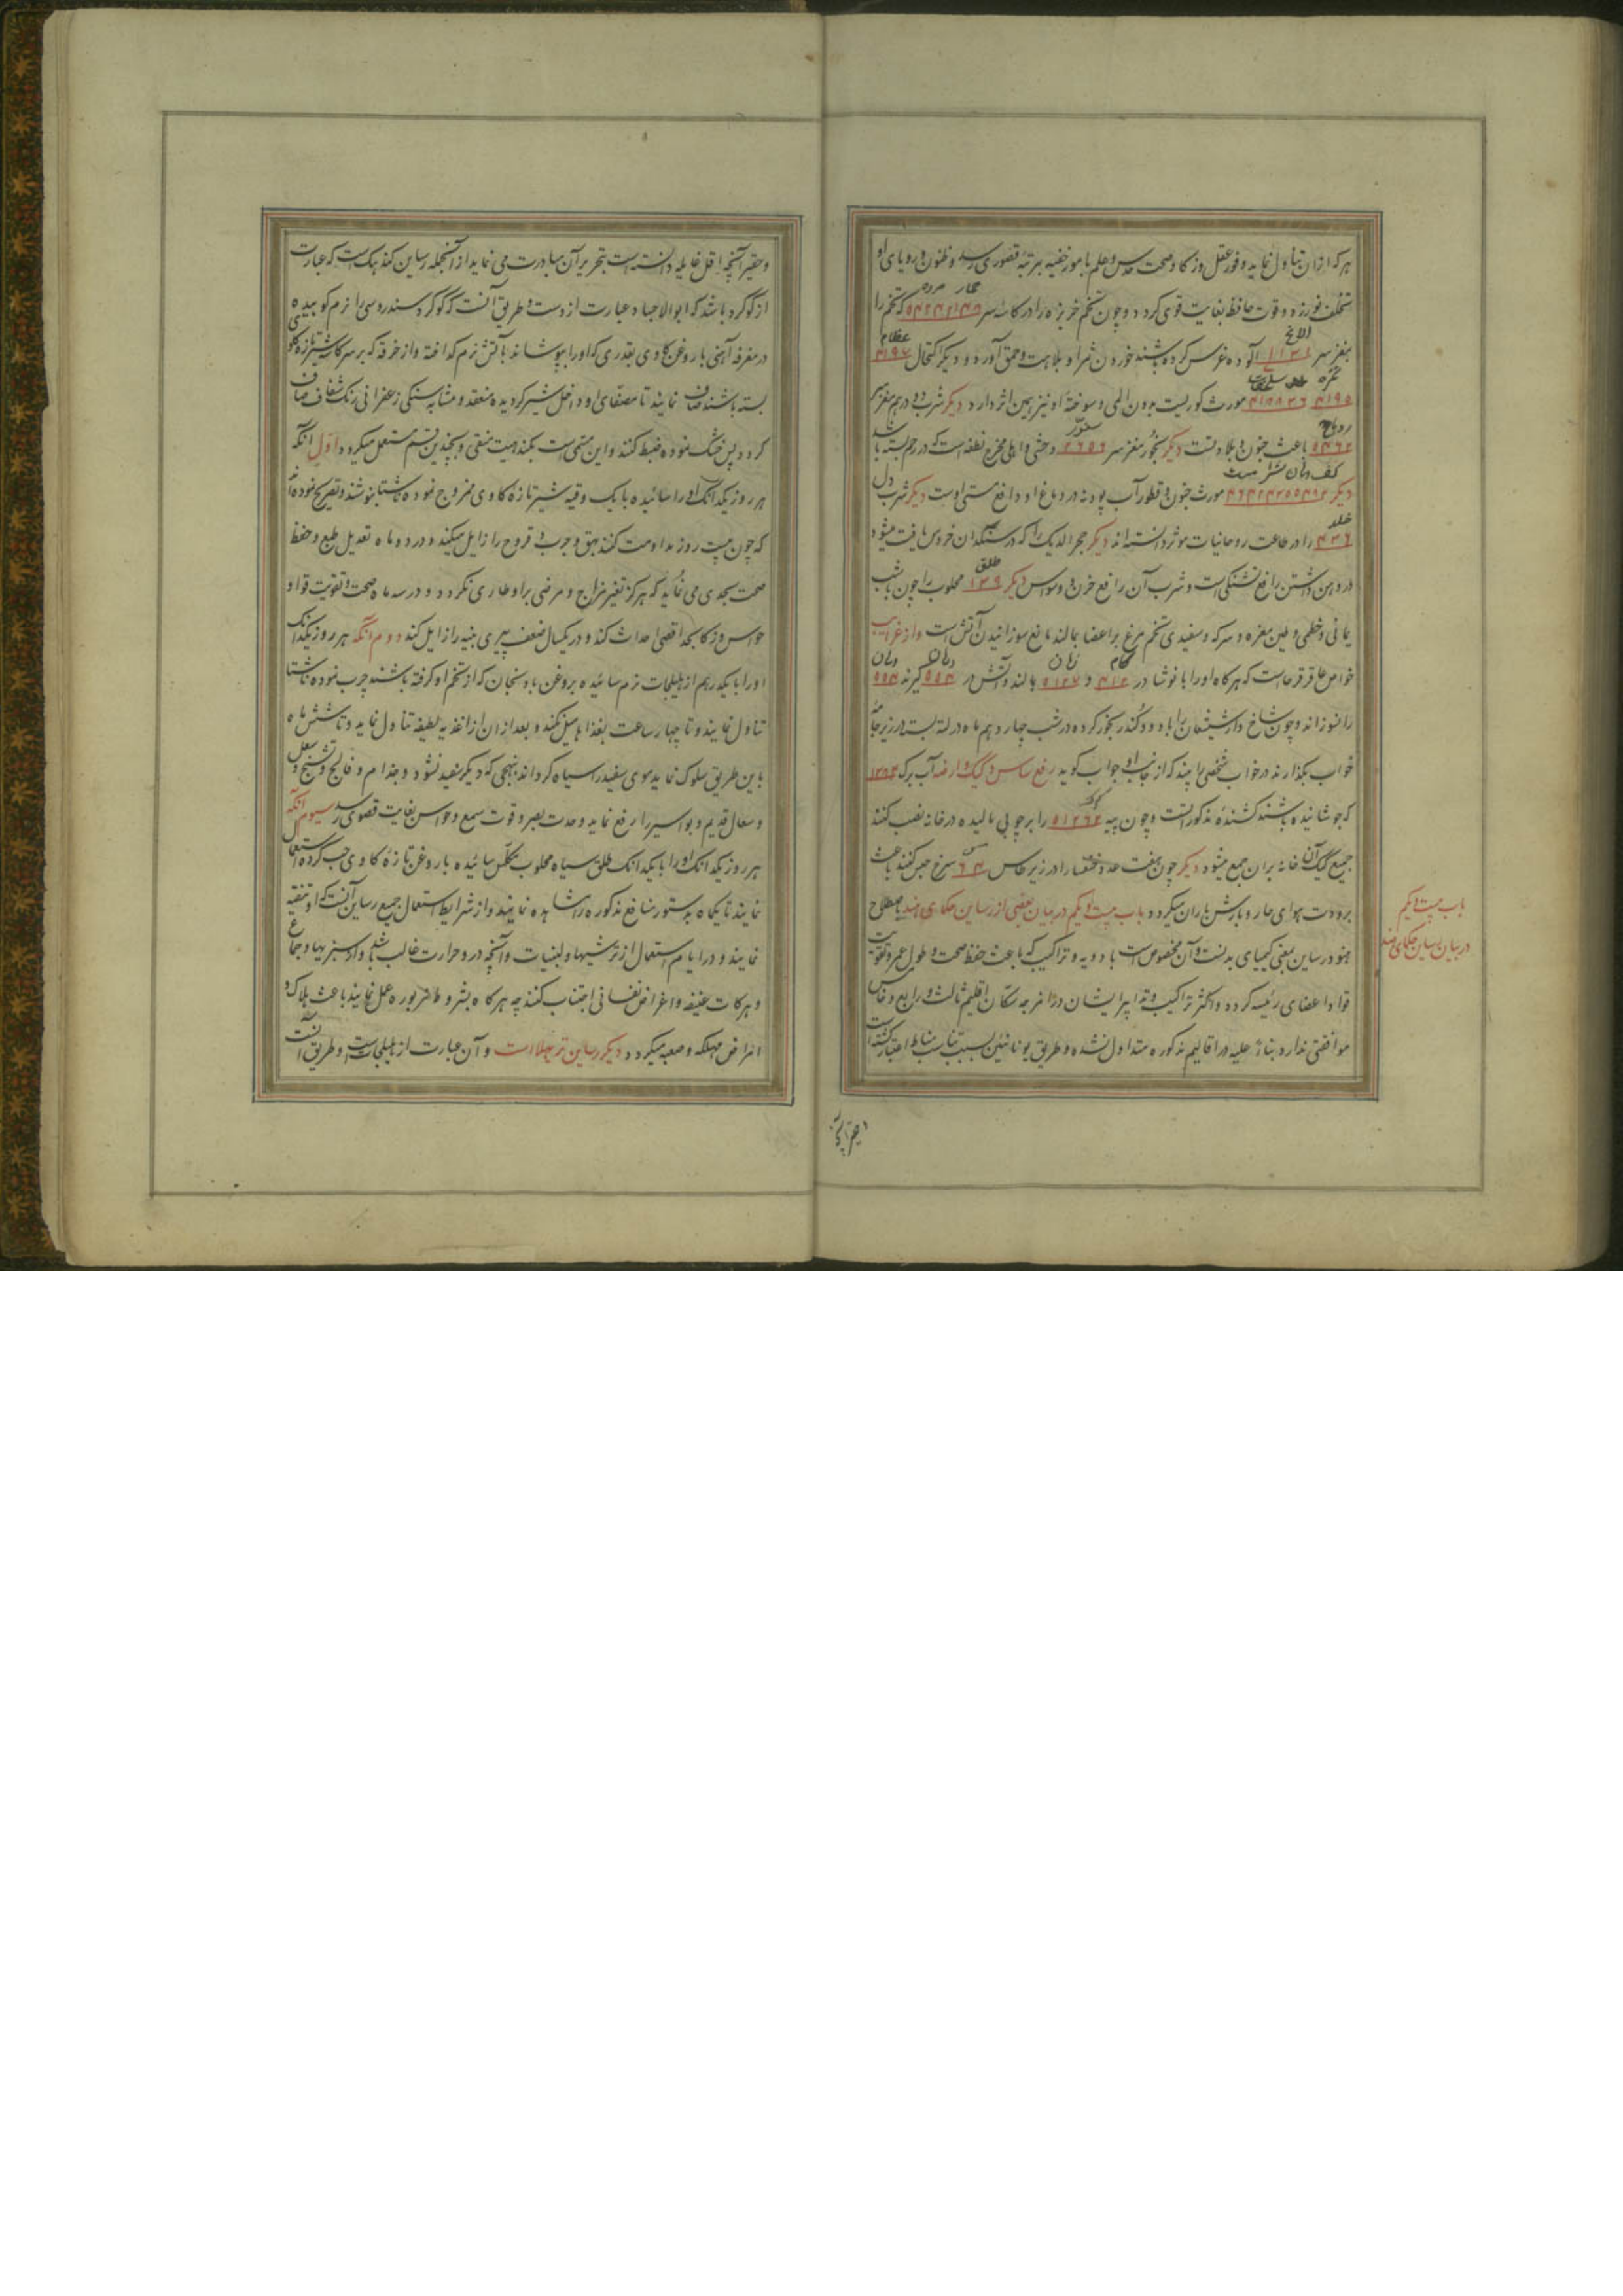 هر که ازان تناول نماید وفور عقل و ذکا و صحت حدس و علم بامور خفیه بمرتبه قصوری رسد و ظنون و رویای او
تخلف نورزد و قوت حافظه بغایت قوی کردد و چون تخم خربزه را در کاسه سر که تخم را
حمار مرده
بمغز سر ۱۳۱ آلوده غرس کرده باشند خوردن ثمر او بلاهت و حمق آورد و دیکر اکتحال ۴۱۹۷
الاغ عظام
مورث کوریست بدون الم و سوخته او نیز همین اثر دارد دیکر شرب دو درهم مغز سر
باعث جنون و بلادتست دیکر بخور مغز سر ۲۶۵۶ وحشی و اهلی مخرج نطفه است که در رحم بسته باشد
دیکر مورث جنون و قطور آب پودنه در دماغ او دافع مستی اوست دیکر شرب دل
خلد
۴۳۶ را در طاعت روحانیات موثر دانسته اند دیکر حجر الدیک را که در سنکدان خروس یافت میشود
در دهن داشتن رافع تشنکی است و شرب آن رافع حزن و وسواس دیکر ۱۳۹ محلوب را چون با شب
طلق
یمانی و خطمی و طین مغره و سرکه و سفیدی تخم مرغ بر اعضا بمالند مانع سوزانیدن آتش است و از غرایب
خواص عاقرقرحاست که هرکاه او را با نوشادر در ۴۱۲ و ۵۱۲۷ بمالند و آتش در ۵۵۴ کیرند ۵۵۴
کام زبان دهان دهان
را نسوزاند و چون شاخ دار شیشعان را با دود کندر بخور کرده در شب چهاردهم ماه در لته بسته در زیر جامه
خواب بکذارند در خواب شخصی را بیند که از جانب او جواب کوید رفع ساس و کیک و ارضه آب برک
که جوشانیده باشند کشنده مذکوراتست و چون پیه ۵۱۲۶۲ را بر چوبی مالیده در خانه نصب کنند
جمیع کیک آن خانه بران جمع میشود دیکر چون هفت عدد خنفسا را در زیر طاس ۶۴ سرخ حبس کنند باعث
برودت هوای حار و بارش باران میکردد باب بیست و یکم در بیان بعضی از رساین حکمای هند باصطلاح
هنود رساین بمعنی کیمیای بدنست و آن مخصوص است بادویه و تراکیب که باعث حفظ صحت و طول عمر و تقویت
قوا و اعضای رئیسه کردد و اکثر تراکیب و تدابیر ایشان در امزجه سکان اقلیم ثالث و رابع و خامس
موافقتی ندارد بناء علیه در اقالیم مذکوره متداول نشده و طریق یونانیین بسبب تناسب مناط اعتبار کشته است
باب بیست و یکم
در بیان رساین حکمای هند
و حقیر آنچه
و حقیر آنچه اقل غایله دانسته است بتحریر آن مبادرت می نماید از آنجمله رساین کندهک است که عبارت
از کوکرد باشد که ابوالاجساد عبارت ازوست و طریق آنست که کوکرد سندروسی را نرم کوبیده
در مغرفه آهنی با روغن کاوی بقدری که او را بپوشاند بآتش نرم کداخته و از خرقه که بر سر کاسه شیر تازه کاوی
بسته باشند صاف نمایند تا مصفای او داخل شیر کردیده منعقد و مشابه سنکی زعفرانی رنک شفاف صاف
کردد پس خشک نموده ضبط کنند و این مسمی است بکندهک منقی و بچندین قسم مستعمل میکردد اول آنکه
هر روز یکدانک او را سائیده با یک وقیه شیر تازه کاوی ممزوج نموده ناشتا بنوشند و تصریح نموده اند
که چون بیست روز مداومت کنند بهق و جرب و قروح را زایل میکند و در دو ماه تعدیل طبع و حفظ
صحت بحدی می نماید که هرکز تغیر مزاج و مرضی برو طاری نکردد و در سه ماه صحت و تقویت قوا و
حواس و ذکا بحد اقصی احداث کند و در یکسال ضعف پیری بنیه را زایل کند دوم آنکه هر روز یکدانک
او را با یکدرهم از هلیلجات نرم سائیده بروغن بادنجان که از تخم او کرفته باشند چرب نموده ناشتا
تناول نمایند و تا چهار ساعت بغذا میل نکنند و بعد از ان از اغذیه لطیفه تناول نماید و تا شش ماه
باین طریق سلوک نماید موی سفید را سیاه کرداند بنهجی که دیکر سفید نشود و جذام و فالج و تشنج و سعفه
و سعال قدیم و بواسیر را رفع نماید و حدت بصر و قوت سمع و حواس بغایت قصوی رسد سیوم آنکه
هر روز یکدانک او را با یکدانک طلق سیاه محلوب مکلس سائیده با روغن تازه کاوی حب کرده استعمال
نمایند تا یکماه بدستور منافع مذکوره را مشاهده نمایند و از شرایط استعمال جمیع رساین آنست که او تنقیه
نمایند و در ایام استعمال از ترشیها و لبنیات و آنچه درو حرارت غالب باشد و از سبزیها و جماع
و حرکات عنیفه و اعراض نفسانی اجتناب کنند چه هرکاه بشروط مزبوره عمل نمایند باعث هلاک و
امراض مهلکه و صعبه میکردد دیکر رساین ترپهلا است و آن عبارت از هلیلجات است و طریق آنست